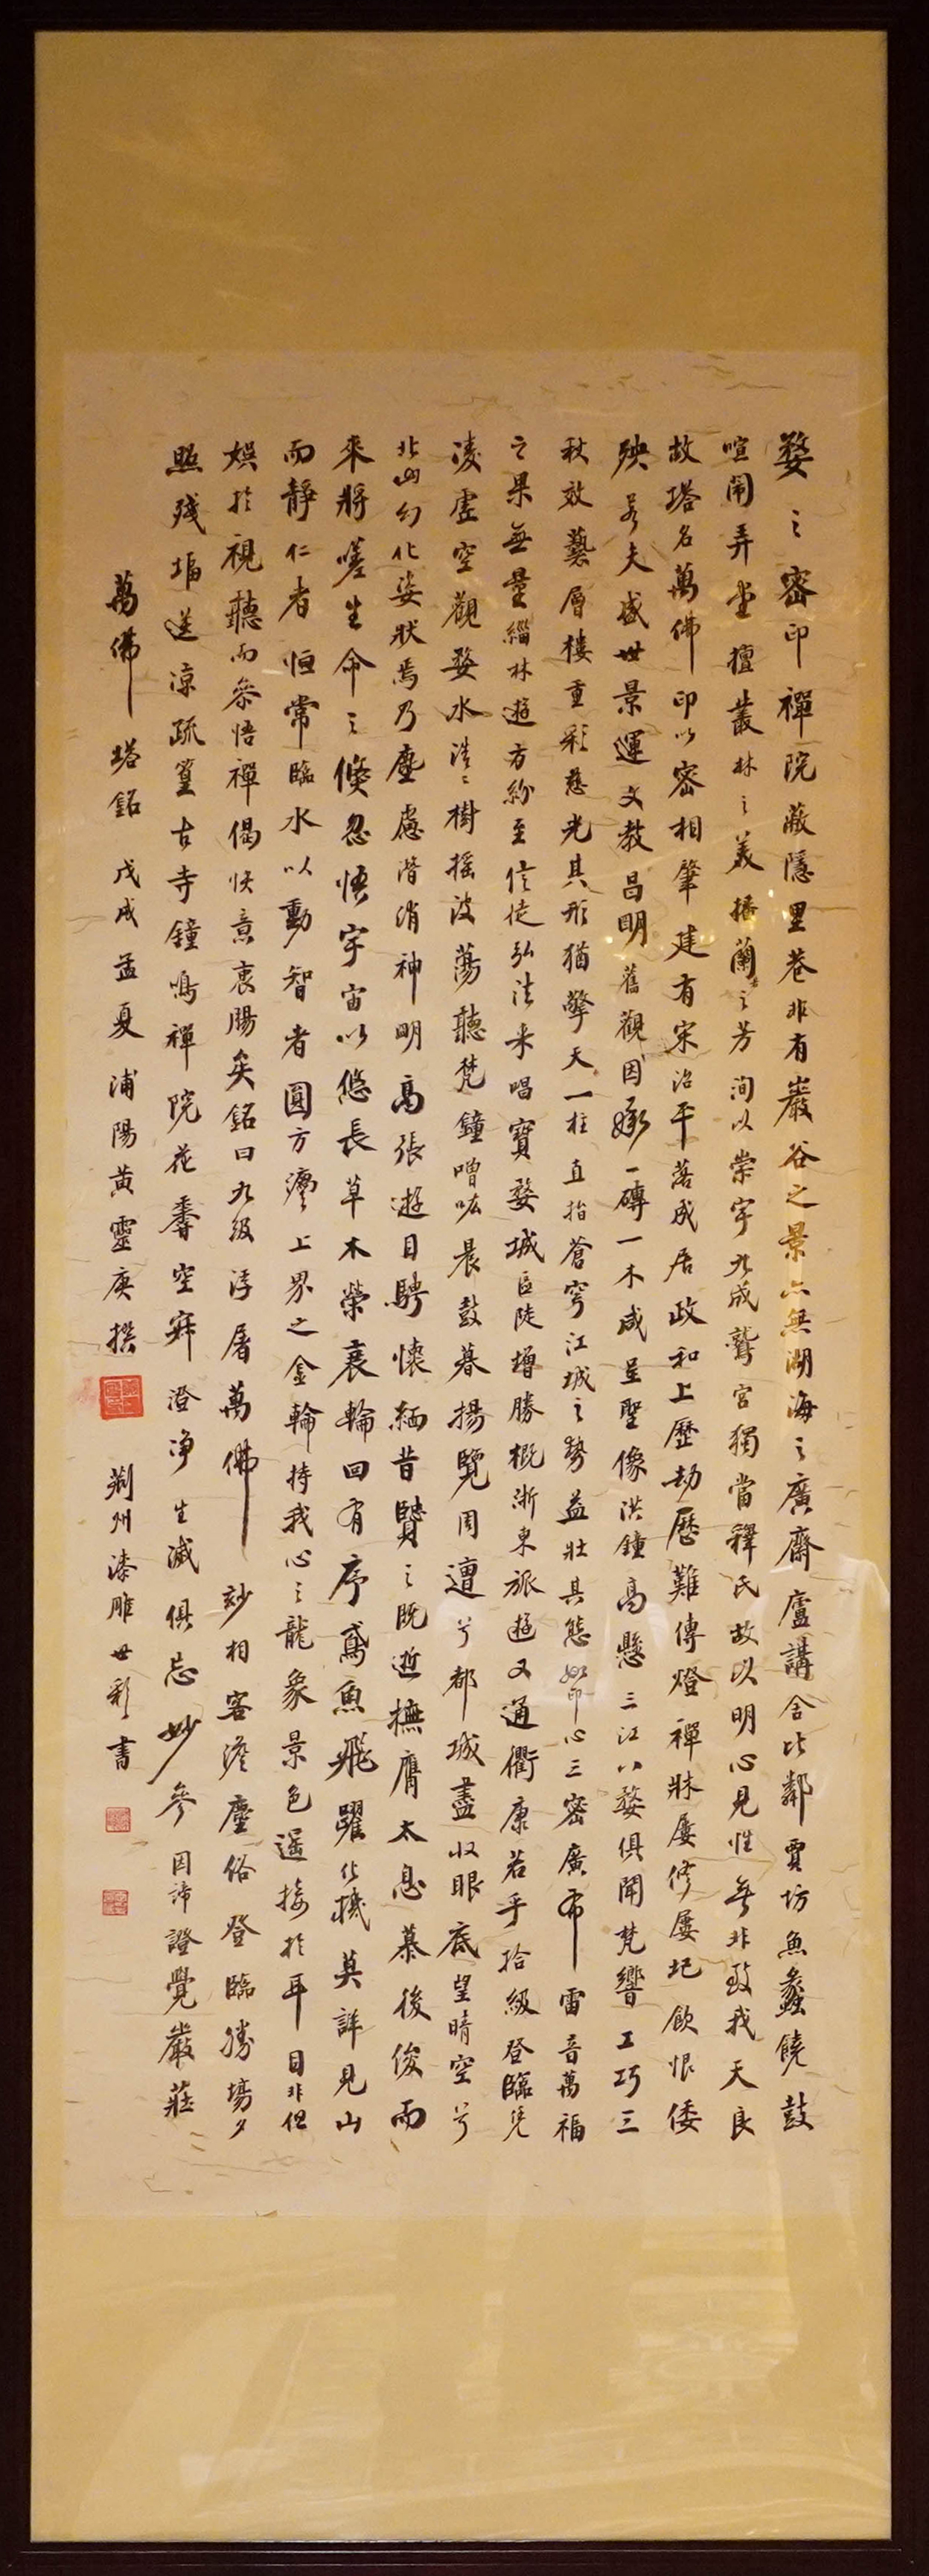 婺之密印禪院蔽隱里巷非有巖谷之景亦無湖海之廣齋廬講舍比鄰賈坊魚蠡饒鼓
喧闹弄堂擅叢林之美播蘭之芳洵以崇宇九成鷲宮獨當釋氏故以明心見性無非致我天良
故塔名萬佛印以密相肇建有宋治平落成居政和上歷劫歷難傳燈禪牀屢修屢圮飲恨倭
殃若夫盛世景運文教昌明舊觀因承一磚一木咸呈聖像洪鐘高懸三江八婺俱聞梵響工巧三
秋效藝層樓重彩慈光其形猶擎天一柱直指蒼穹江城之勢益壯其態如印心三密廣布雷音萬福
之果無量緇林遊方紛至信徒弘法來唱寶婺城區陡增勝概浙東旅遊又通衢康若乎拾級登臨凭
淩虛空觀婺水浩浩樹摇波蕩聽梵鐘噌吰晨鼓暮揚覽周遭兮都城盡收眼底望晴空兮
北山幻化姿狀焉乃塵慮潛消神明高張遊目騁懷緬昔賢之既逝撫膺太息慕後俊而
來將嗟生命之倏忽悟宇宙以悠長草木榮衰輪回有序鳶魚飛躍化機莫詳見山
而靜仁者恒常臨水以動智者圓方瀝上界之金輪持我心之龍象景色遥接於耳目非但
娛於視聽而參悟禪偈快意衷腸矣銘曰九級浮屠萬佛妙相客滌塵俗登臨勝場夕
照殘堛送涼疏篁古寺鐘鳴禪院花香空寂澄净生滅俱忘妙參因諦證覺嚴莊
萬佛塔銘戊戌孟夏浦陽黃靈庚撰 荆州漆雕世彩書